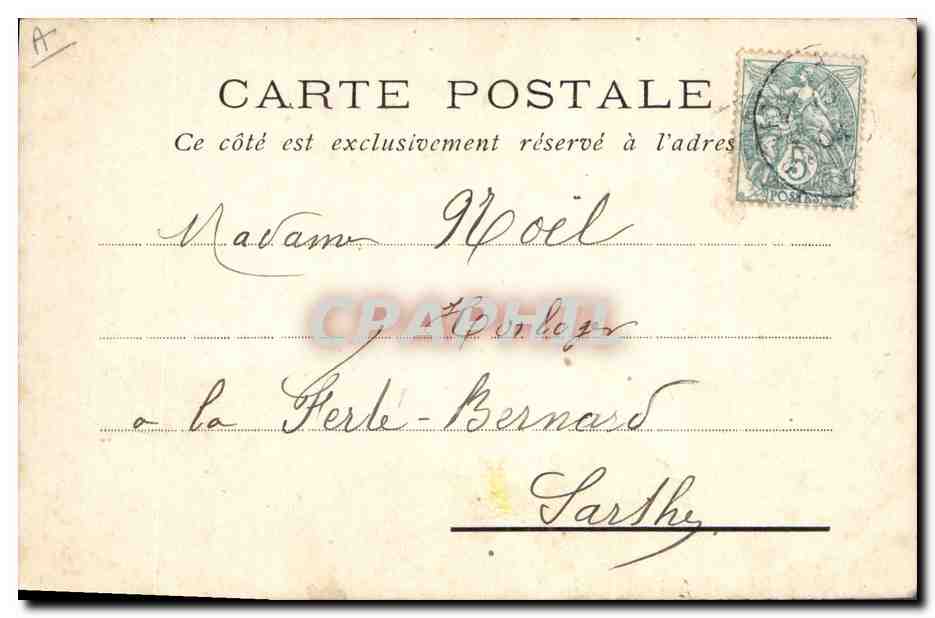 A
CARTE POSTALE
Ce côté est exclusivement réservé à l'adres
5c
POSTES
Madame Noël
CPAPHIL
Horloger
a la Ferté-Bernard
Sarthe